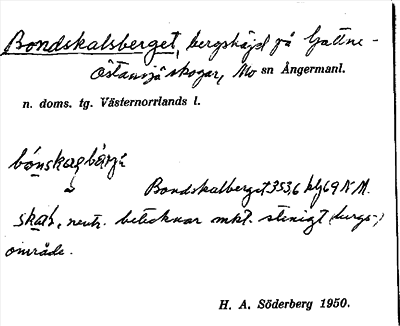 Bondskalsberget, bergshöjd på Gottne-
Östansjö skogar, Mo sn Ångermanl.
n. doms. tg. Västernorrlands l.
bónskagbärjä
Bondskalberget 353,6 kbl 69 N M.
skal, neutr. betecknar mkt. stenigt (bergs-)
område.
H. A. Söderberg 1950.